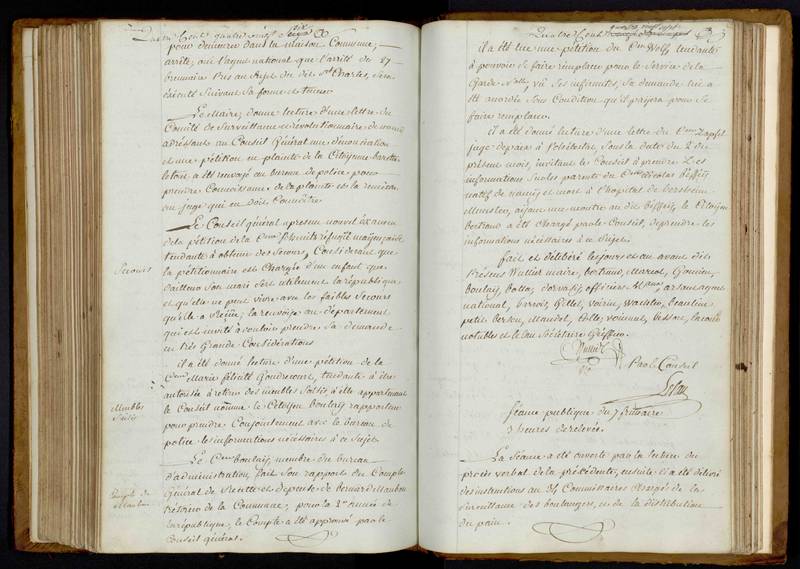 pour demeurer dans la maison Commune,
arrête, oui l'agent national que l'arrêté du 27
brumaire pris au sujet du dit St Charles, sera
exécuté suivant sa forme et teneur
Le Maire, donne lecture d'une lettre du
Comité de Surveillance révolutionnaire de nancy
adressant au Conseil Général une dénonciation
et une pétition en plainte de la Citoyenne
le tout a été renvoyé au bureau de police pour
prendre Connoissance de la plainte et la remettre
au juge qui en doit Connoître
Secours
Le Conseil général après un nouvel Examen
de la pétition de la Cenne réfugiée mayençaise
tendante à obtenir des Secours, Considérant que
la pétitionnaire est Chargée d'un enfant que
d'ailleurs son mari sert utilement la république
et qu'elle ne peut vivre avec les faibles Secours
qu'elle a reçue, la renvoye au département
qui est invité à vouloir prendre Sa demande
en très Grande Considération
il a été donné lecture d'une pétition de la
Cenne Marie félicité Gondrecourt, tendante à être
autorisée à retirer des meubles saisis à elle appartenant
Meubles
Saisis
le Conseil nomme le Citoyen boulay rapporteur
pour prendre Conjointement avec le bureau de
police les informations nécessaires à ce Sujet
Le Cen boulay, membre du bureau
d'administration, fait Son rapport du Compte
Compte de
Maubon
Général de Recette et dépense de bernard Maubon
trésorier de la Commune, pour la 2e année de
la république, le Compte a été approuvé par le
Conseil général.
quatre vingt sept
Quatre Cent
il a été lue une pétition du Cen Wolff tendante
à pouvoir se faire remplacer pour le Service de la
Garde nalle, vû ses infirmités, Sa demande lui a
été accordée Sous Condition qu'il payera pour se
faire remplacer.
il a été donné lecture d'une lettre du Cen Zapffel
juge de paix à Molsheim, sous la date du 2 du
présent mois, invitant le Conseil à prendre des
informations sur les parents du Cen nicolas
natif de nancy et mort à l'hopital de
ayant une montre au dit le Citoyen
bertrand a été Chargé par le Conseil, de prendre les
informations nécessaires à ce Sujet.
fait et délibéré les jours et an avant dits
Présens Wulliez maire, bertrand, Mariot,
boulay, officiers Mpaux agent
national, Gillet, Voirin, beaulieu
petit, Mandel,
notables et le Secrétaire Greffier.
Par le Conseil
Séance publique du 7 frimaire
3 heures de relevée.
La Séance a été ouverte par la lecture du
procès verbal de la précédente, ensuite il a été délivré
des instructions au 24 Commissaires Chargés de la
Surveillance des boulangers, et de la distribution
du pain.